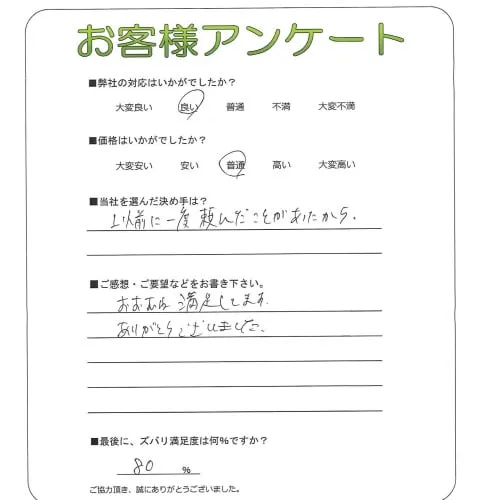 お客様アンケート
■弊社の対応はいかがでしたか？
大変良い 良い 普通 不満 大変不満
■価格はいかがでしたか？
大変安い 安い 普通 高い 大変高い
■当社を選んだ決め手は？
以前に一度頼んだことがあったから.
■ご感想・ご要望などをお書き下さい。
おおむね満足してます.
ありがとうございました.
■最後に、ズバリ満足度は何%ですか？
80 %
ご協力頂き、誠にありがとうございました。